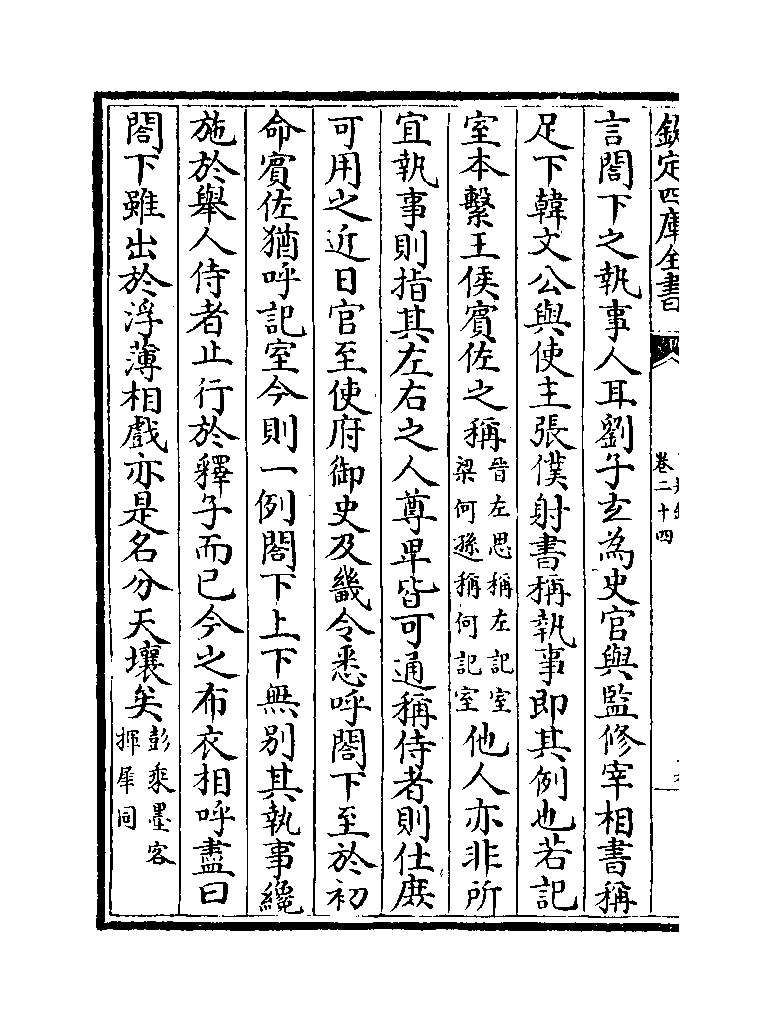 欽定四庫全書
卷二十四
言閣下之執事人耳劉子𤣥為史官與監修宰相書稱
足下韓文公與使主張僕射書稱執事即其例也若記
室本繫王侯賓佐之稱晉左思稱左記室梁何遜稱何記室他人亦非所
宜執事則指其左右之人尊卑皆可通稱侍者則仕庶
可用之近日官至使府御史及畿令悉呼閣下至於初
命賓佐猶呼記室今則一例閣下上下無別其執事纔
施於舉人侍者止行於釋子而已今之布衣相呼盡曰
閣下雖出於浮薄相戲亦是名分天壤矣彭乘墨客揮犀同